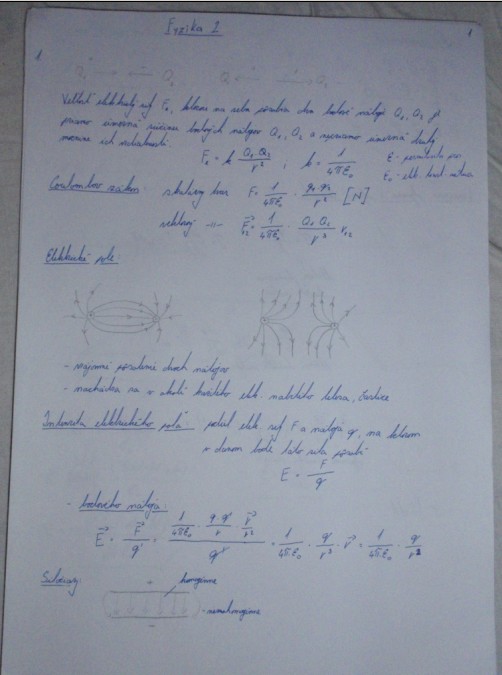 Fyzika 2
1
1
Q₁ Q₂ Q₁ Q₂
Veľkosť elektrickej sily Fₑ, ktorou na seba pôsobia dva bodové náboje Q₁, Q₂ je
priamo úmerná súčinu bodových nábojov Q₁, Q₂ a nepriamo úmerná druhej
mocnine ich vzdialenosti.
Fₑ = k Q₁·Q₂/r² ; k = 1/4πε₀
Coulombov zákon: skalárny tvar F = 1/4πε₀ · q₁·q₂/r² [N]
vektorový -"- F⃗₁₂ = 1/4πε₀ · Q₁·Q₂/r² r₁₂
Elektrické pole:
- vzájomné pôsobenie dvoch nábojov
- nachádza sa v okolí každého elek. nabitého telesa, častice
Intenzita elektrického poľa: podiel elek. sily F a náboja q, na ktorom
v danom bode táto sila pôsobí
E = F/q
- bodového náboja:
E⃗ = F⃗/q' = 1/4πε₀ · q·q'/r · r⃗/r² / q' = 1/4πε₀ · q/r³ · r⃗ = 1/4πε₀ · q/r²
Siločiary:
homogénne
- nehomogénne